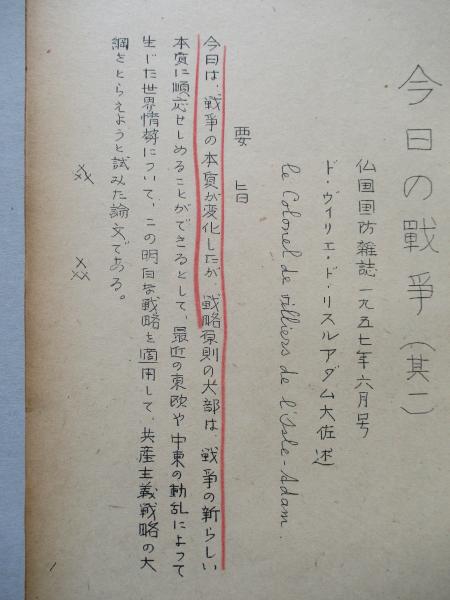 今日の戰爭（其二）
仏国国防雑誌一九五七年六月号
ド・ヴィリエ・ド・リスルアダム大佐述
le Colonel de Villiers de l'Isle-Adam.
要旨
今日は、戦争の本質が変化したが、戦略原則の大部は、戦争の新らしい
本質に順応せしめることができるとして、最近の東欧や中東の動乱によって
生じた世界情勢について、この明白な戦略を適用して、共産主義戦略の大
綱をとらえようと試みた論文である。